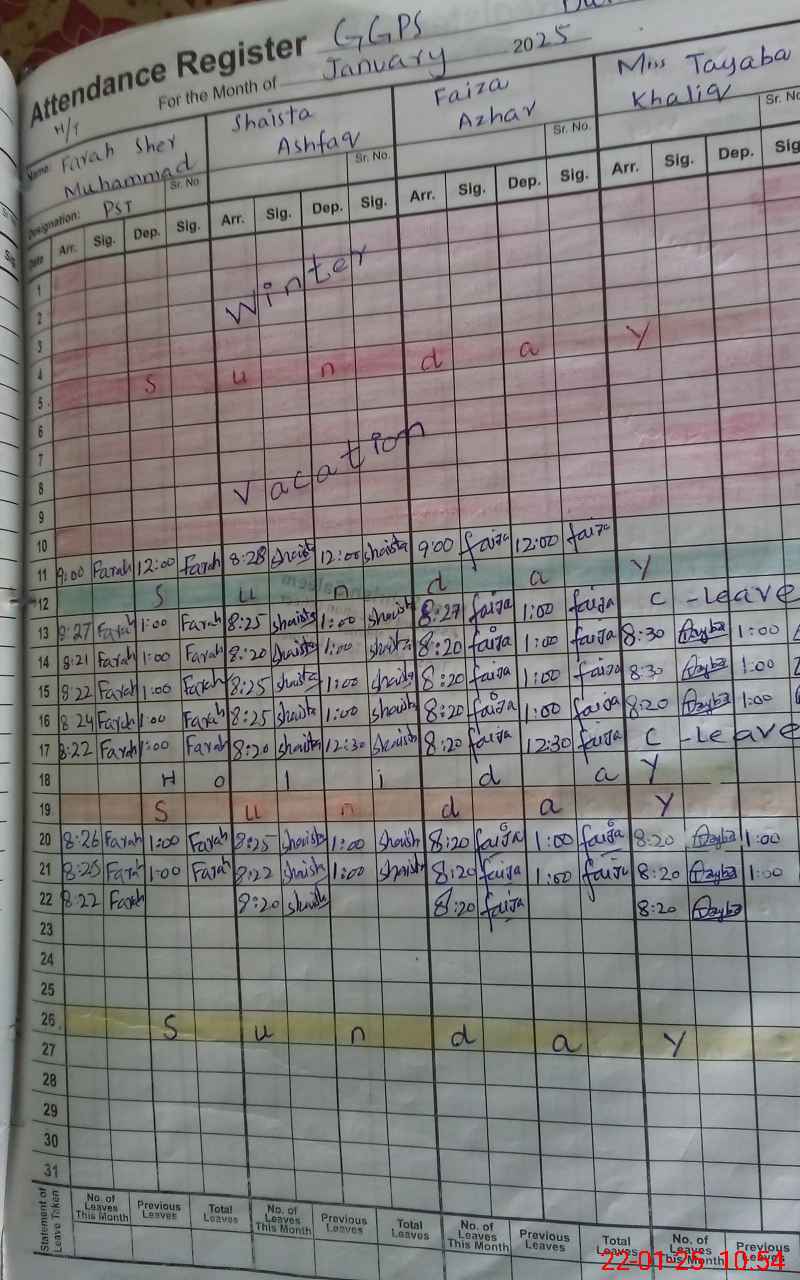 Attendance Register GGPS
For the Month of January 2025
H/T
Name: Farah Sher Muhammad Sr. No
Shaista Ashfaq Sr. No.
Faiza Azhar Sr. No.
Miss Tayaba Khaliq Sr. No.
Designation: PST
Date Arr. Sig. Dep. Sig. Arr. Sig. Dep. Sig. Arr. Sig. Dep. Sig. Arr. Sig. Dep. Sig
1
2 Winter
3
4
5 Sunday
6
7
8 Vacation
9
10
11 9:00 Farah 12:00 Farah 8:28 Shaista 12:00 Shaista 9:00 faiza 12:00 faiza
12 Sunday
13 8:27 Farah 1:00 Farah 8:25 Shaista 1:00 Shaista 8:27 faiza 1:00 faiza C-Leave
14 8:21 Farah 1:00 Farah 8:20 Shaista 1:00 Shaista 8:20 faiza 1:00 faiza 8:30 Tayba 1:00
15 8:22 Farah 1:00 Farah 8:25 Shaista 1:00 Shaista 8:20 faiza 1:00 faiza 8:30 Tayba 1:00
16 8:24 Farah 1:00 Farah 8:25 Shaista 1:00 Shaista 8:20 faiza 1:00 faiza 8:20 Tayba 1:00
17 8:22 Farah 1:00 Farah 8:20 Shaista 12:30 Shaista 8:20 faiza 12:30 faiza C-Leave
18 Holiday
19 Sunday
20 8:26 Farah 1:00 Farah 8:25 Shaista 1:00 Shaista 8:20 faiza 1:00 faiza 8:20 Tayba 1:00
21 8:25 Farah 1:00 Farah 8:22 Shaista 1:00 Shaista 8:20 faiza 1:00 faiza 8:20 Tayba 1:00
22 8:22 Farah 8:20 Shaista 8:20 faiza 8:20 Tayba
23
24
25
26 Sunday
27
28
29
30
31
Statement of Leave Taken No. of Leaves This Month Previous Leaves Total Leaves No. of Leaves This Month Previous Leaves Total Leaves No. of Leaves This Month Previous Leaves Total Leaves No. of Leaves This Month Previous Leaves
22-01-25 10:54